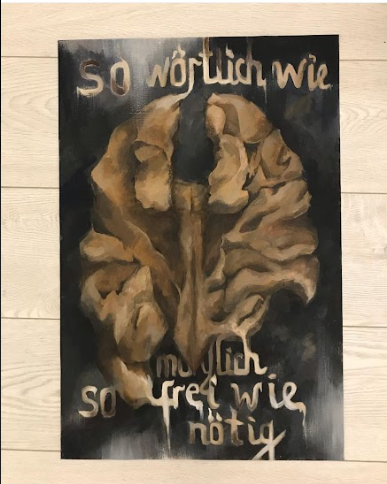 so wörtlich wie
möglich
so frei wie
nötig